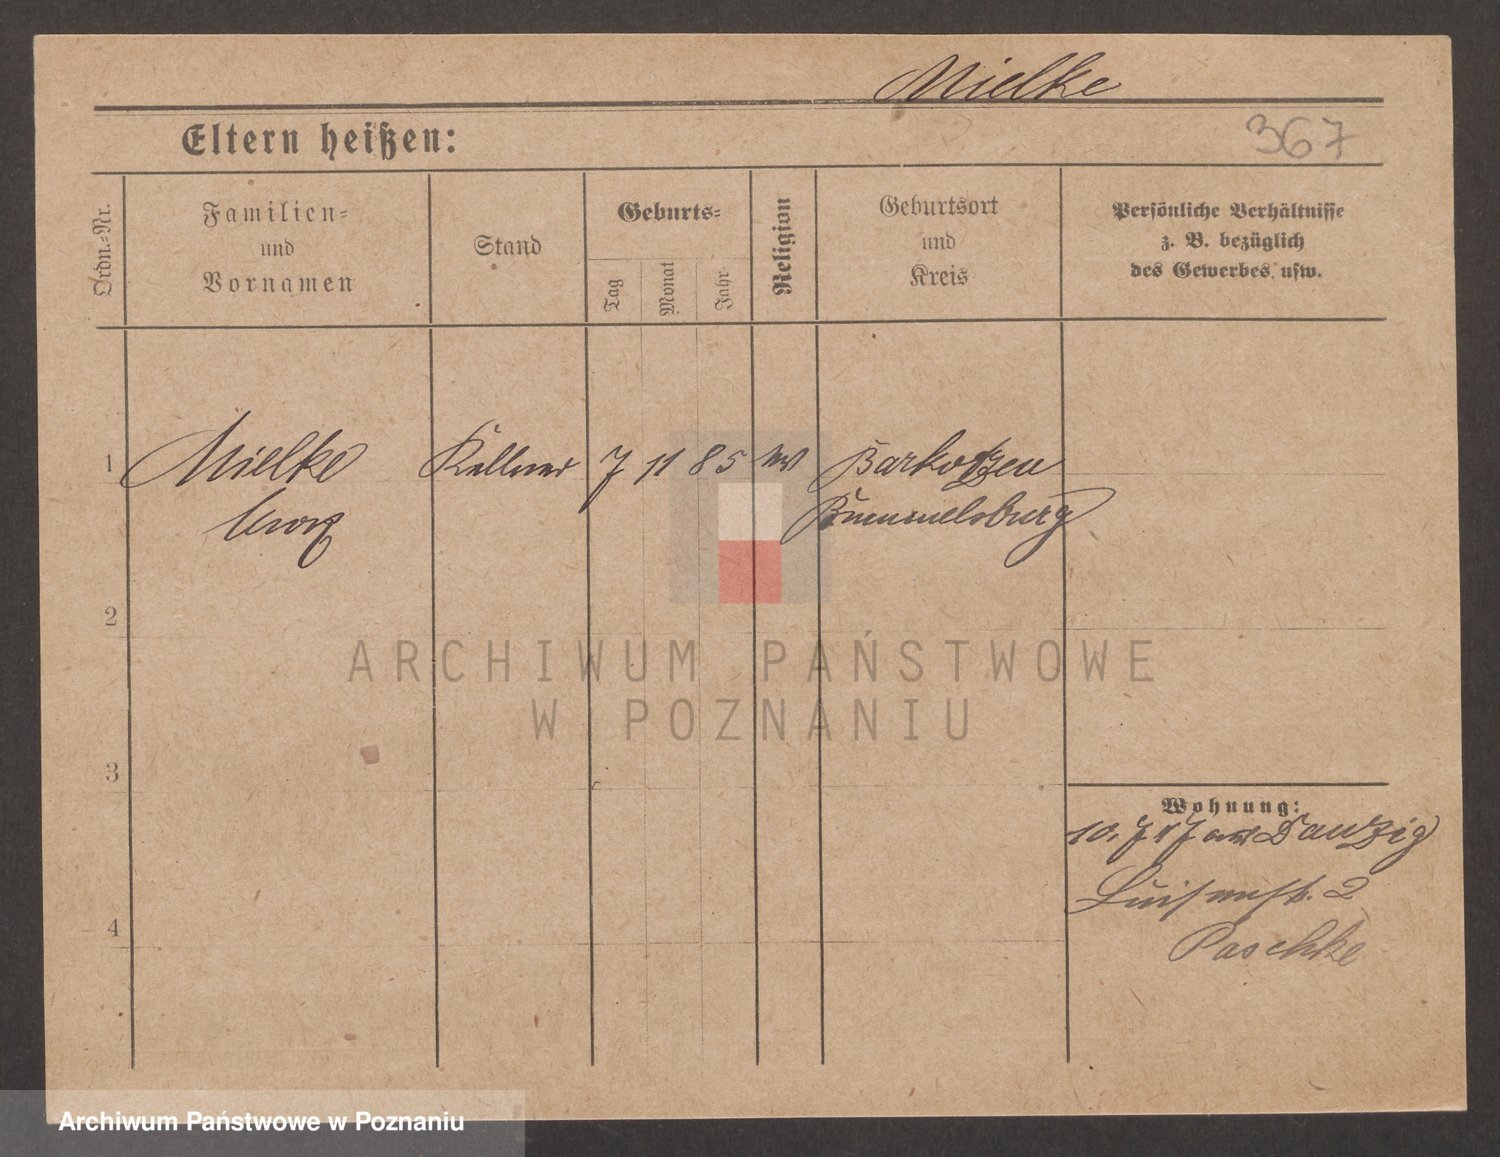 Mielke
Eltern heißen:
367
Ordn.-Nr.
Familien-
und
Vornamen
Stand
Geburts-
Tag
Monat
Jahr
Religion
Geburtsort
und
Kreis
Persönliche Verhältnisse
z. B. bezüglich
des Gewerbes usw.
1
Mielke
Kellner
7
11
85
ev
Barkotzen
Rummelsburg
2
3
4
Wohnung:
10. 7. 17 aus Danzig
Luisenstr. 2
Paschke
ARCHIWUM PAŃSTWOWE
W POZNANIU
Archiwum Państwowe w Poznaniu